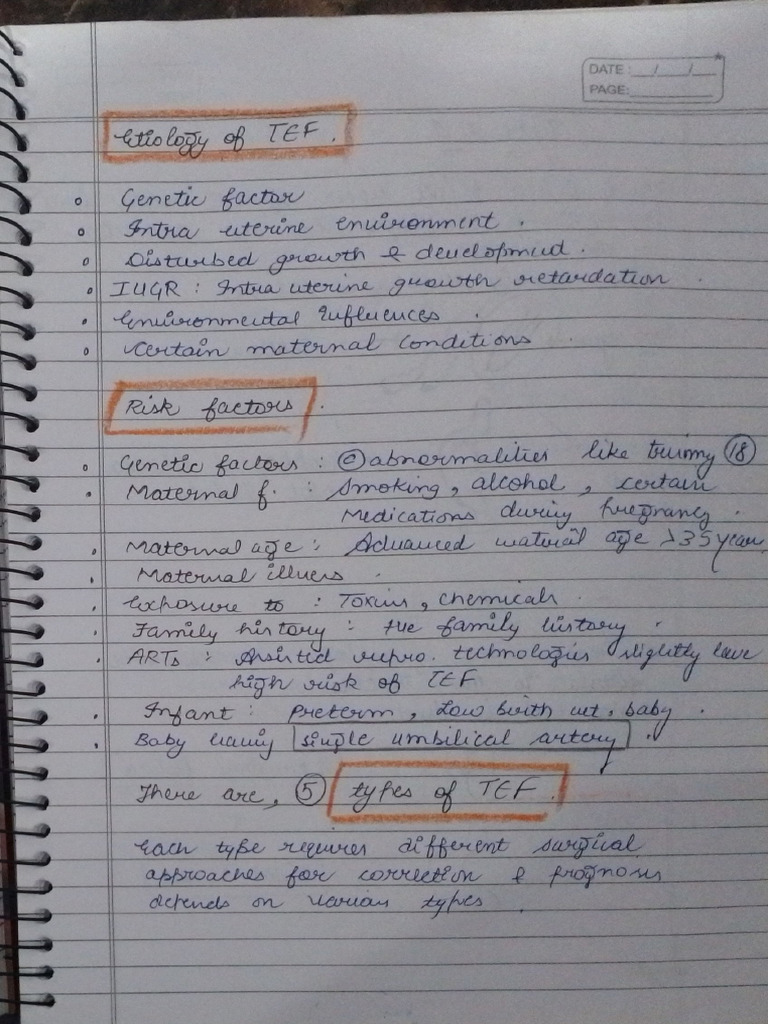 DATE: __/__/__
PAGE:
Etiology of TEF.
Genetic factor
Intra uterine environment.
Disturbed growth & development.
IUGR: Intra uterine growth retardation.
Environmental Influences.
Certain maternal conditions
Risk factors.
Genetic factors: ⓒ abnormalities like trisomy ⑱
Maternal f. : Smoking, alcohol, certain
Medications during pregnancy.
Maternal age: Advanced maternal age >35 year
Maternal illness.
Exposure to: Toxins, chemicals.
Family history: +ve family history.
ARTs: Assisted repro. technologies slightly have
high risk of TEF
Infant: Preterm, Low birth wt. baby.
Baby having single umbilical artery.
There are, ⑤ types of TEF.
Each type requires different surgical
approaches for correction & prognosis
depends on various types.